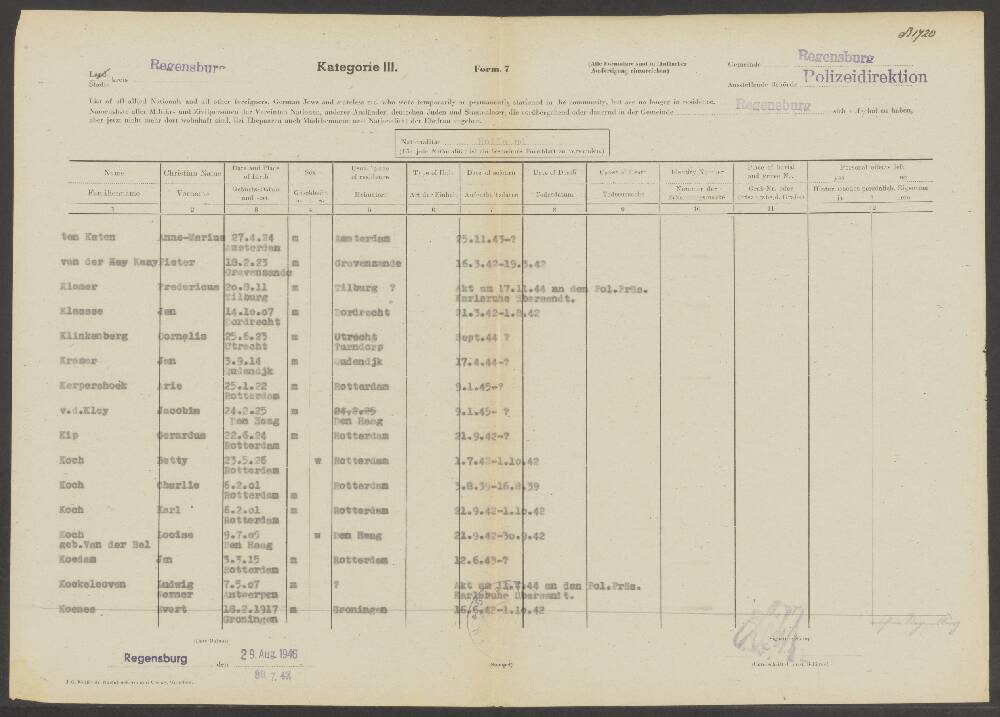 B1720
Regensburg
Kategorie III.
Form. 7
(Alle Formulare sind in 3facher Ausfertigung einzureichen)
Gemeinde Regensburg
Land kreis
Stadt-
Ausstellende Behörde Polizeidirektion
List of all allied Nationals and all other foreigners, German Jews and stateless etc. who were temporarily or permanently stationed in the community, but are no longer in residence.
Namensliste aller Militär- und Zivilpersonen der Vereinten Nationen, anderer Ausländer, deutschen Juden und Staatenloser, die vorübergehend oder dauernd in der Gemeinde Regensburg sich aufgehalten haben,
aber jetzt nicht mehr dort wohnhaft sind. Bei Ehepaaren auch Mädchenname und Nationalität der Ehefrau angeben.
Nationalität Holland
(Für jede Nationalität ist ein besonderes Formblatt zu verwenden)
Name Christian Name Date and Place of birth Sex Usual place of residence Type of Date of sojourn Date of Death Cause of Death Identity Number Place of burial and grave No. Personal effects left
yes no
Familienname Vorname Geburts-Datum und -ort Geschlecht Heimatort Art der Aufenthaltsdaten Todesdatum Todesursache Nummer der Grab-Nr. oder Hinterlassenes persönlich. Eigentum
ja nein
1 2 3 4 5 6 7 8 9 10 11 12
ten Katen Anne-Marius 27.4.24 m Amsterdam 25.11.43-?
Amsterdam
van der Hay Kaay Pieter 18.2.23 m Gravensande 16.3.42-19.3.42
Gravensande
Klamer Fredericus 20.8.11 m Tilburg ? Akt am 17.11.44 an den Pol.Präs.
Tilburg Karlsruhe übersandt.
Klaasse Jan 14.10.07 m Dordrecht 21.3.42-1.8.42
Dordrecht
Klinkenberg Cornelis 25.6.23 m Utrecht Sept.44 ?
Utrecht Turndorp
Kramer Jan 3.9.14 m Oudendjk 17.4.44-?
Oudendjk
Kerpershoek Arie 25.1.22 m Rotterdam 9.1.45-?
Rotterdam
v.d.Kley Jacobim 24.2.25 m 24.2.25 9.1.45- ?
Den Haag Den Haag
Kip Gerardus 22.6.24 m Rotterdam 21.9.42-?
Rotterdam
Koch Betty 23.5.26 w Rotterdam 1.7.42-1.10.42
Rotterdam
Koch Charlie 6.2.01 Rotterdam 3.8.39-16.8.39
Rotterdam m
Koch Karl 6.2.01 m Rotterdam 21.9.42-1.10.42
Rotterdam
Koch Louise 9.7.05 w Den Haag 21.9.42-30.9.42
geb.Van der Bel Den Haag
Koedam Jan 3.3.15 m Rotterdam 12.6.43-?
Rotterdam
Koekeleoven Ludwig 7.5.07 m ? Akt am 11.7.44 an den Pol.Präs.
Werner Antwerpen Karlsruhe übersandt.
Koenes Evert 18.2.1917 m Groningen 16.6.42-1.10.42
Groningen
(Date-Datum)
Regensburg den 29. Aug. 1946
(Stempel)
(Unterschrift d. ausst. Behörde)